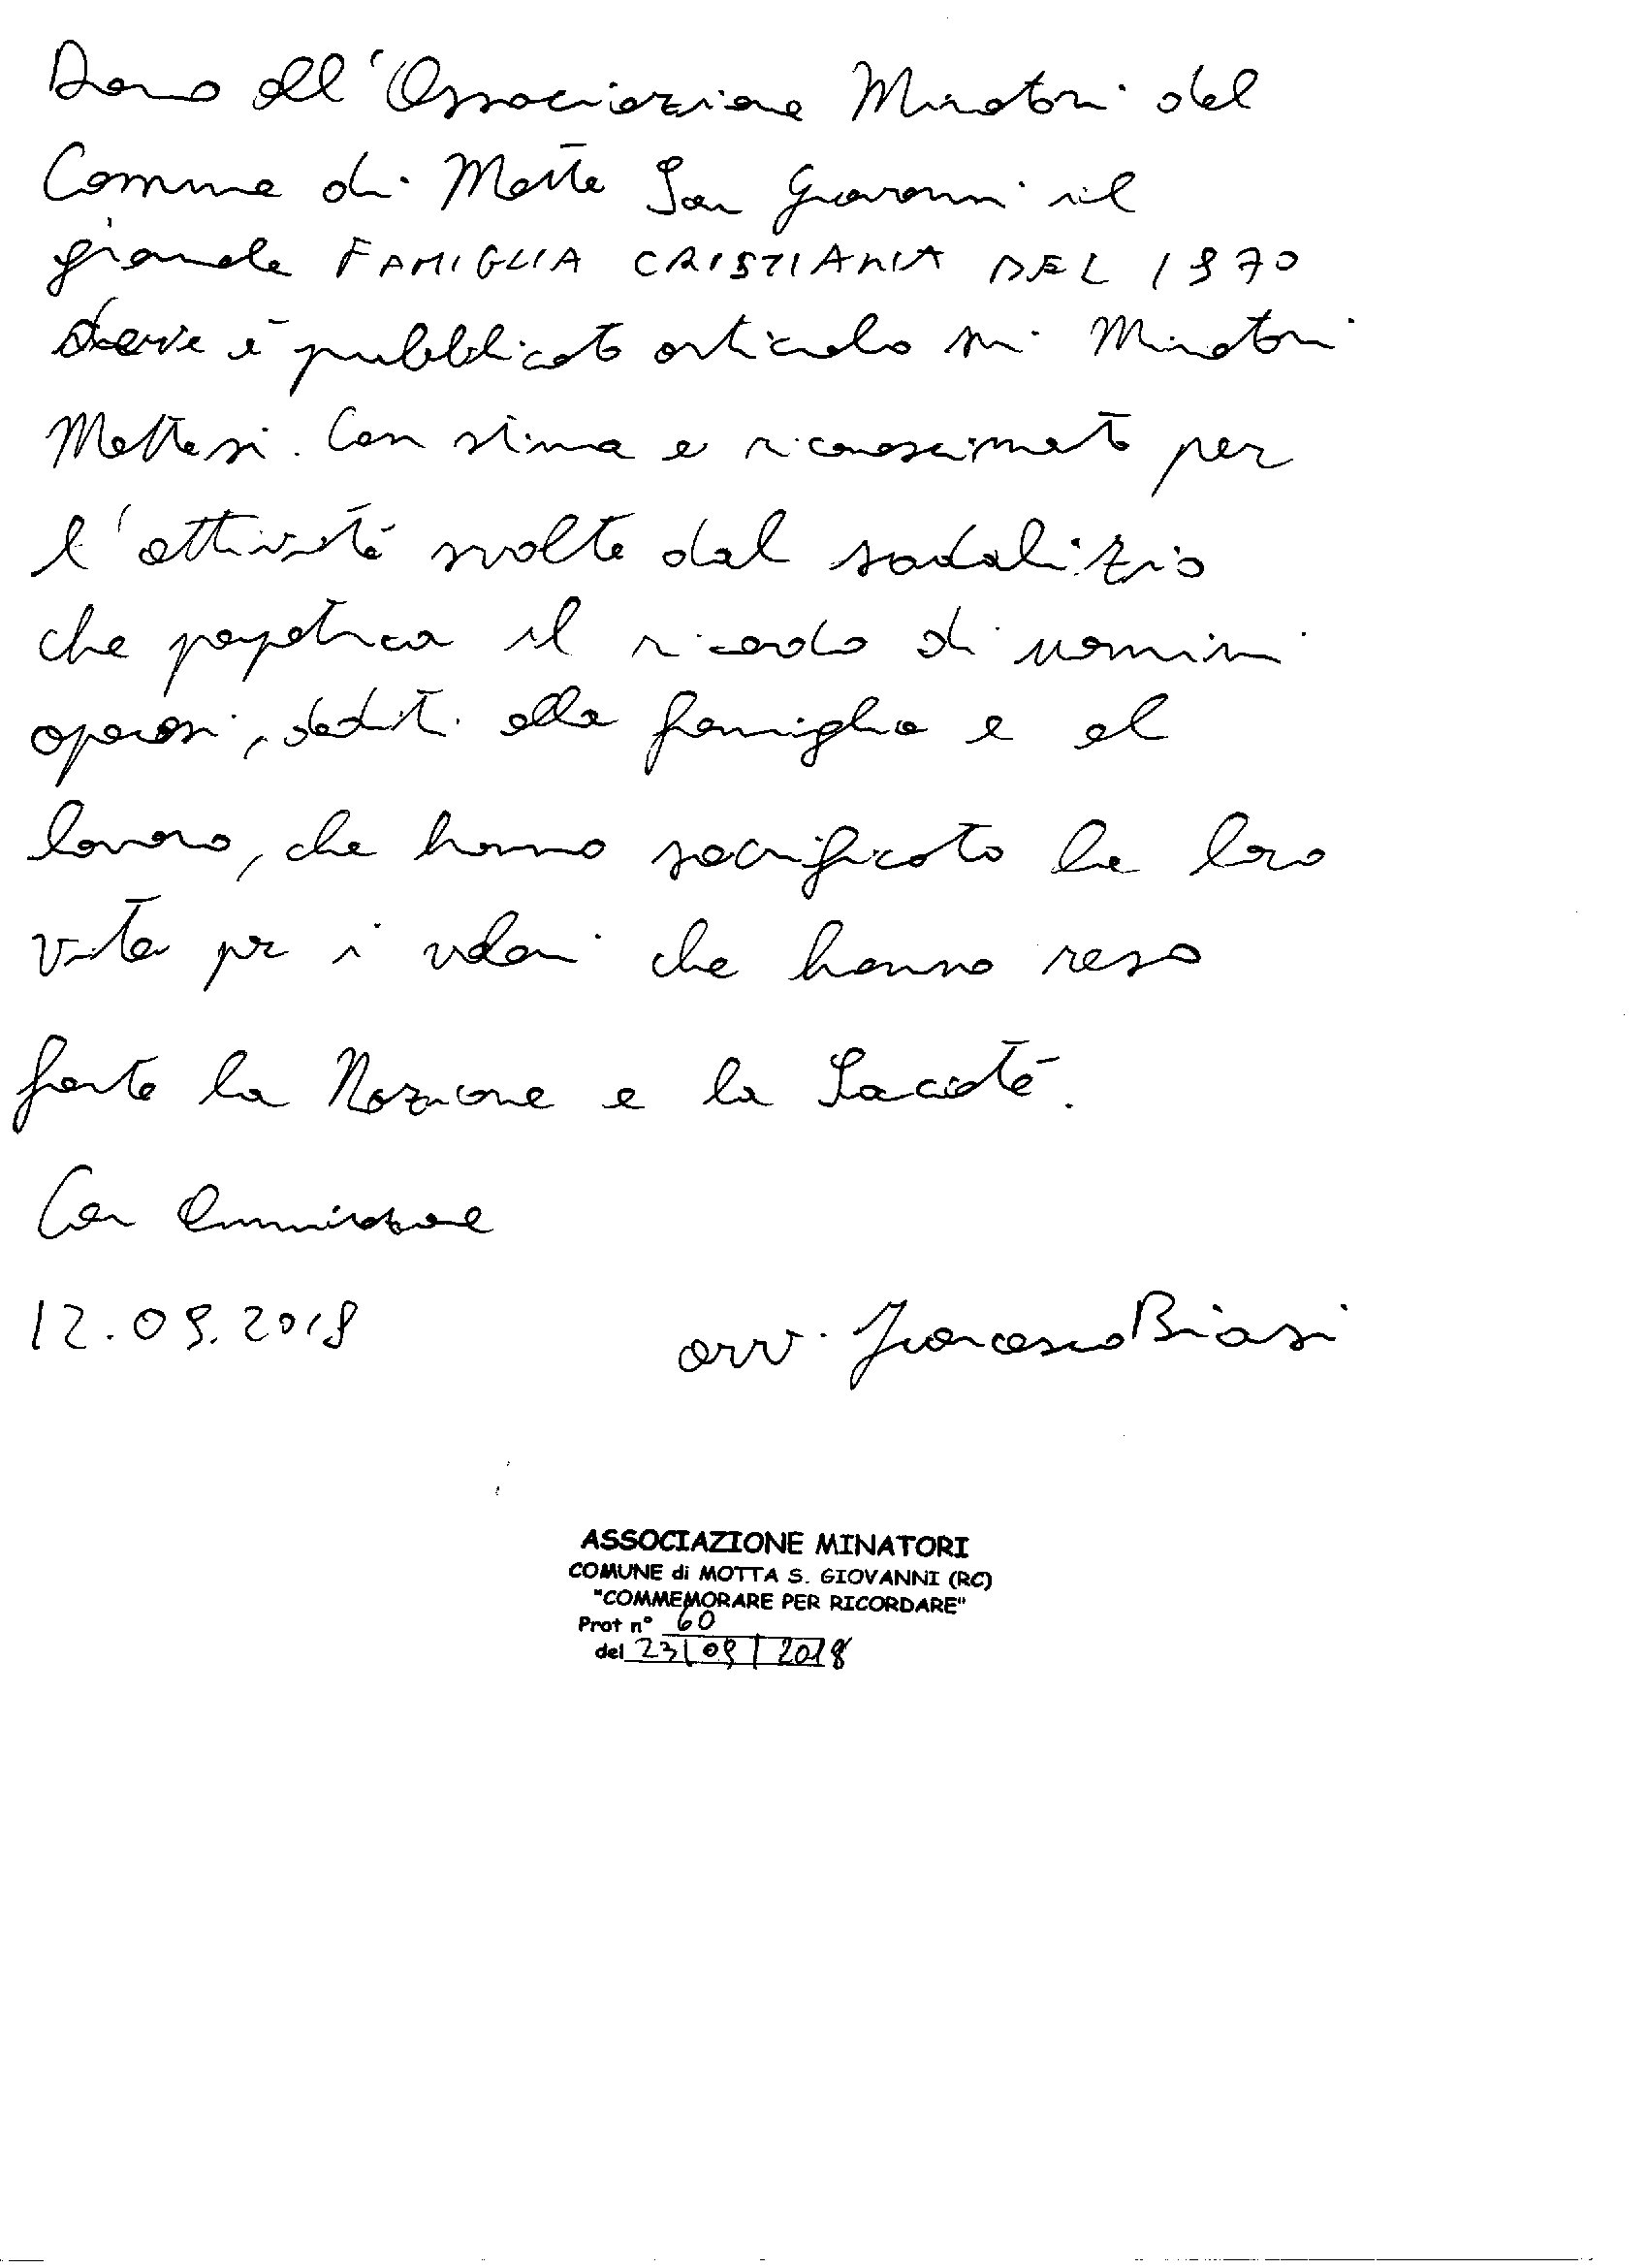 Dono all'Associazione Minatori del
Comune di Motta San Giovanni il
grande FAMIGLIA CRISTIANA DEL 1970
dove è pubblicato articolo sui Minatori
Mottesi. Con stima e riconoscimento per
l'attività svolta dal sodalizio
che perpetua il ricordo di uomini
operosi, dediti alla famiglia e al
lavoro, che hanno sacrificato la loro
vita per i valori che hanno reso
forte la Nazione e la Società.
Con Ammirazione
12.09.2018 avv. Francesco Biasi
ASSOCIAZIONE MINATORI
COMUNE di MOTTA S. GIOVANNI (RC)
"COMMEMORARE PER RICORDARE"
Prot n° 60
del 23/09/2018